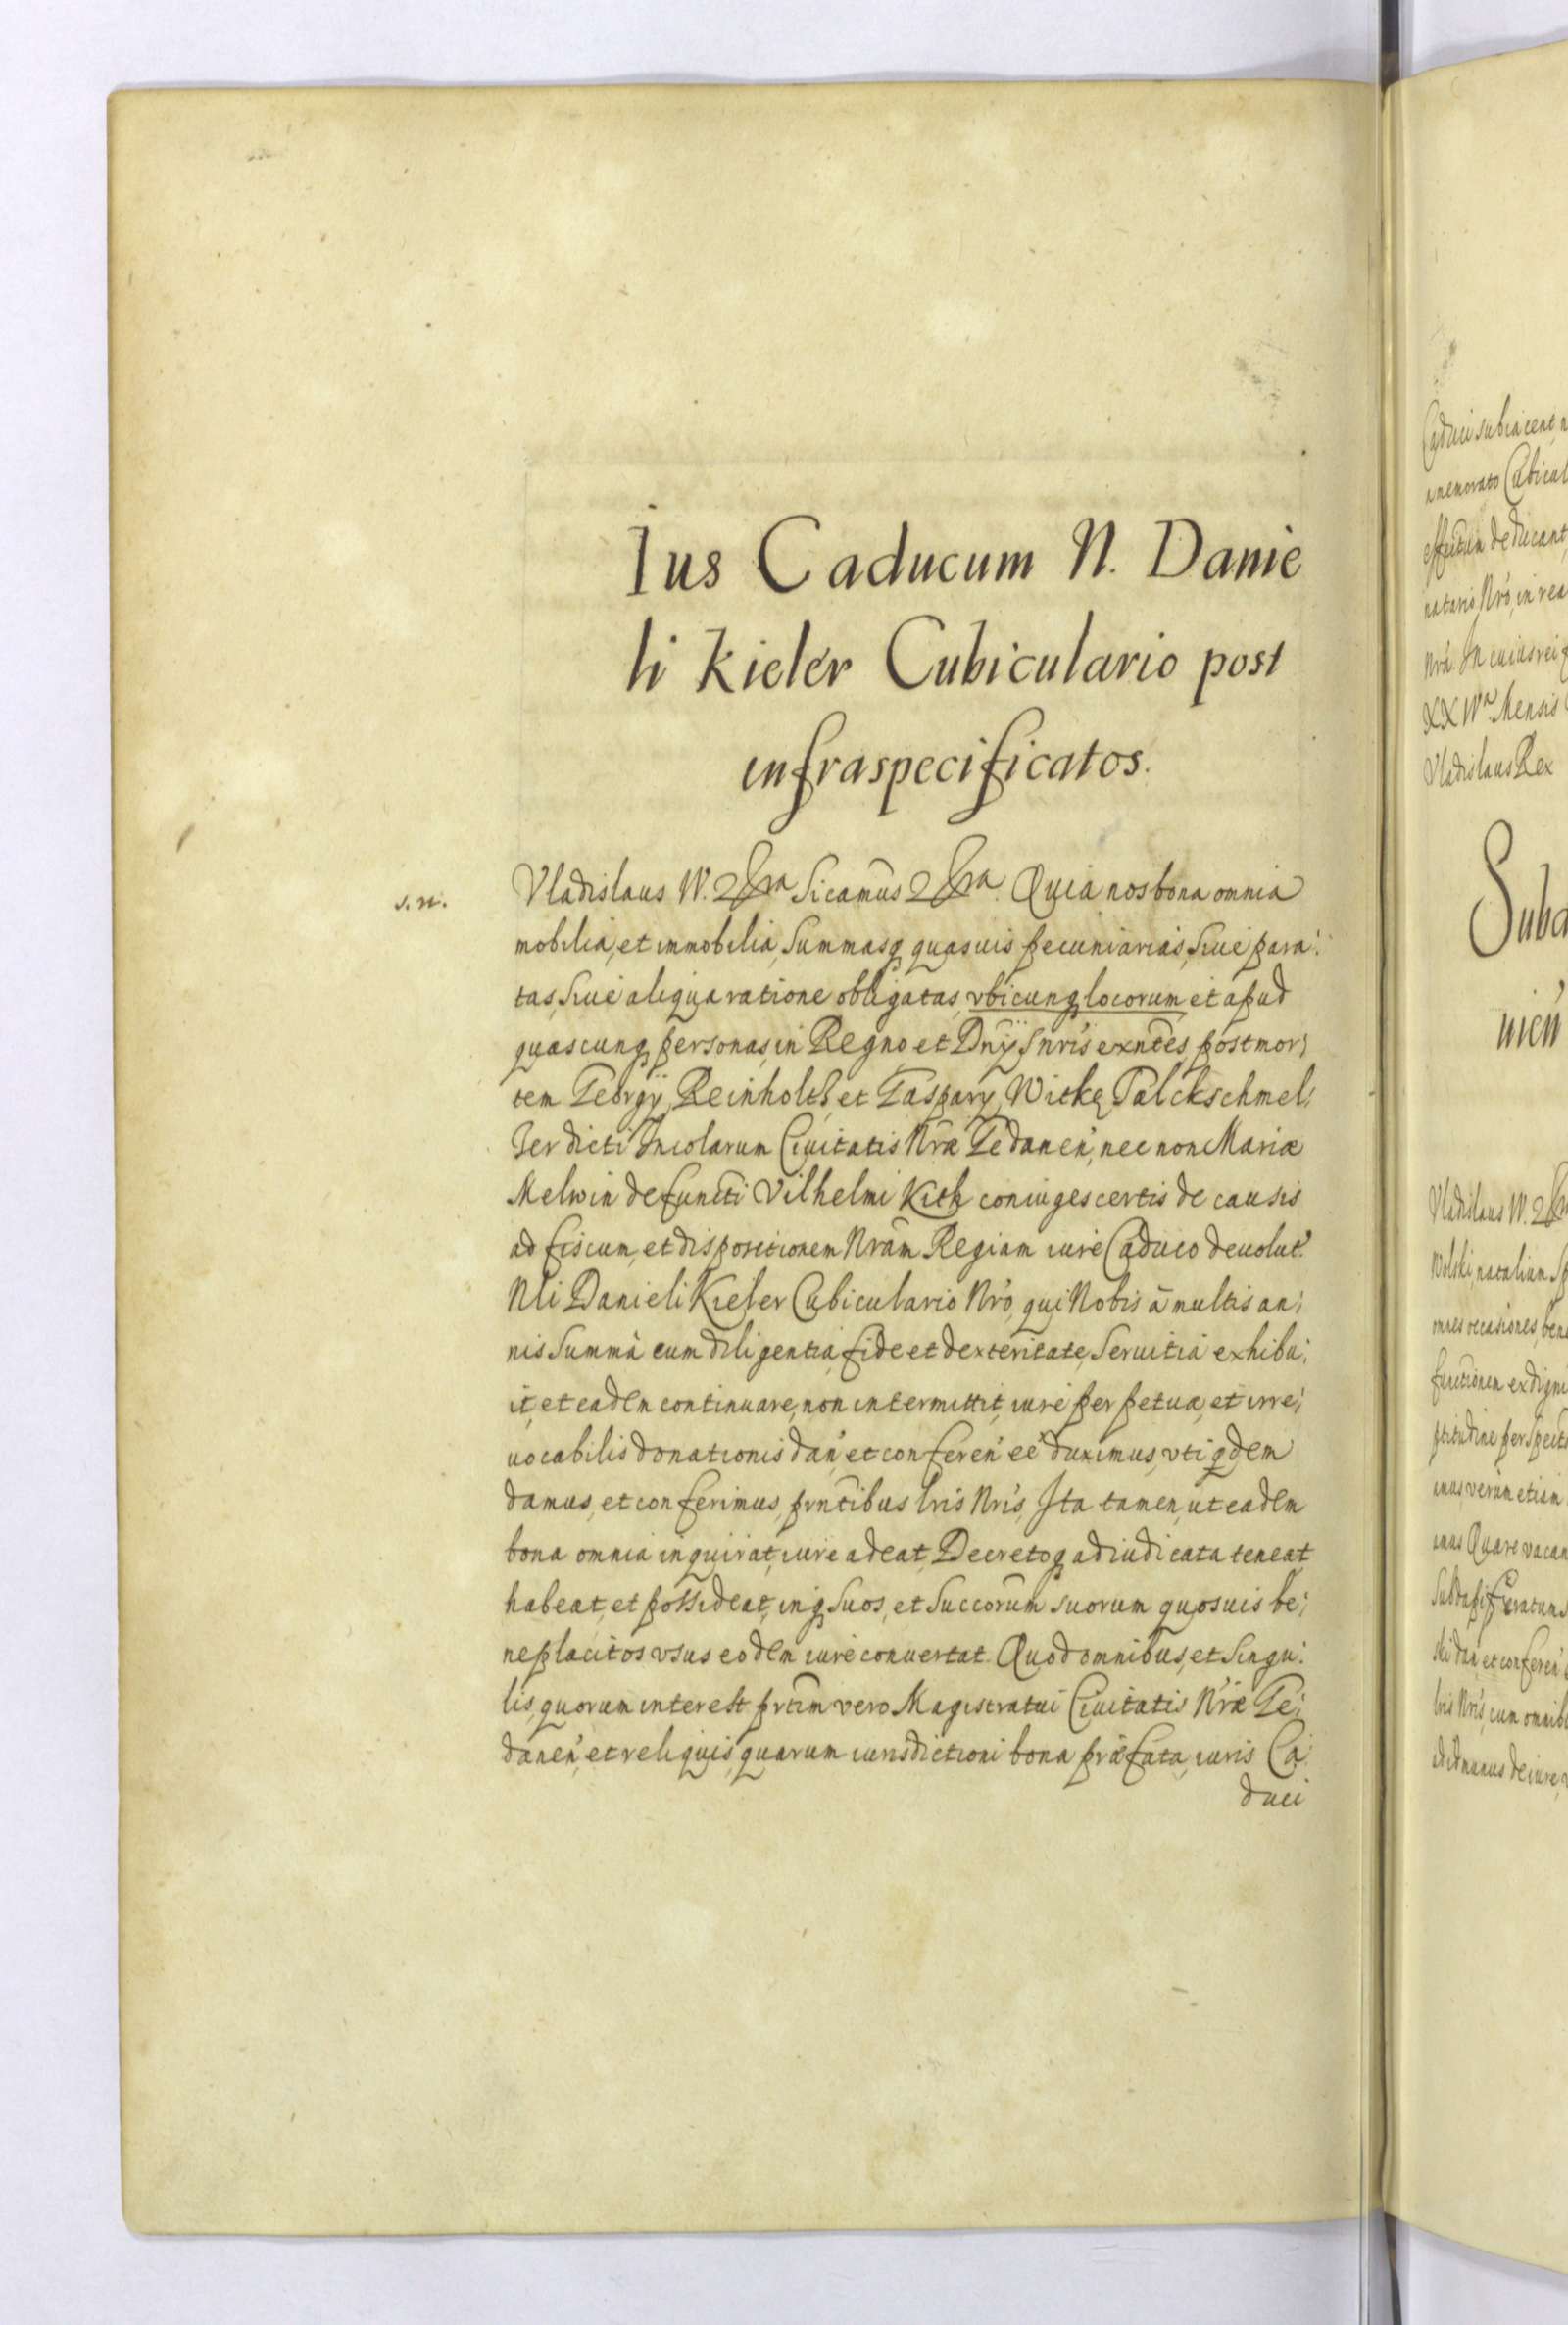 Ius Caducum N. Danie
li Kieler Cubiculario post
infraspecificatos.
s. n.
Vladislaus IV. &ra Sicamus &ra. Quia nos bona omnia
mobilia, et immobilia, Summasq quasuis pecuniarias, siue para:
tas, siue aliqua ratione obligatas, vbicunq locorum, et apud
quascunq personas, in Regno et Dnÿs nrīs exntēs, post mor:
tem Georgÿ Reinholth et Casparÿ Witke Palckschmel:
zer dicti Incolarum Ciuitatis Nræ Gedanen', nec non Mariæ
Melwin defuncti Vilhelmi Kith coniuges certis de causis
ad fiscum, et dispositionem Nrām Regiam iure Caduco deuolut'
Nli Danieli Kieler Cubiculario Nro, qui Nobis à multis an:
nis Summà cum diligentia, fide et dexteritate, Seruitia exhibu:
it, et eadem continuare, non intermittit, iure perpetuæ, et irre:
uocabilis donationis dan', et conferen' eē duximus, vti qdem
damus, et conferimus, prntibus lris Nrīs, Ita tamen, ut eadem
bona omnia inquirat, iure adeat, Decretoq adiudicata teneat
habeat, et possideat, inq suos, et Succorum suorum quosuis be:
neplacitos vsus eodem iure conuertat. Quod omnibus, et Singu:
lis, quorum interest prtim vero Magistratui Ciuitatis Nræ Ge:
danen', et reliquis, quarum iurisdictioni bona præfata, iuris Ca
duci
Caduci subiacent,
memorato Cubicul
effectum deducant,
natario Nro, in rea
Nrā In cuius rei
XXIVa Mensis
Vladislaus Rex
Suba
nien'
Vladislaus IV.
Wolski, natalium
omnes occasiones,
functionem ex digni
etiam
Quare vacan
dan' et conferen'
lris Nrīs, cum omnib
de iure,